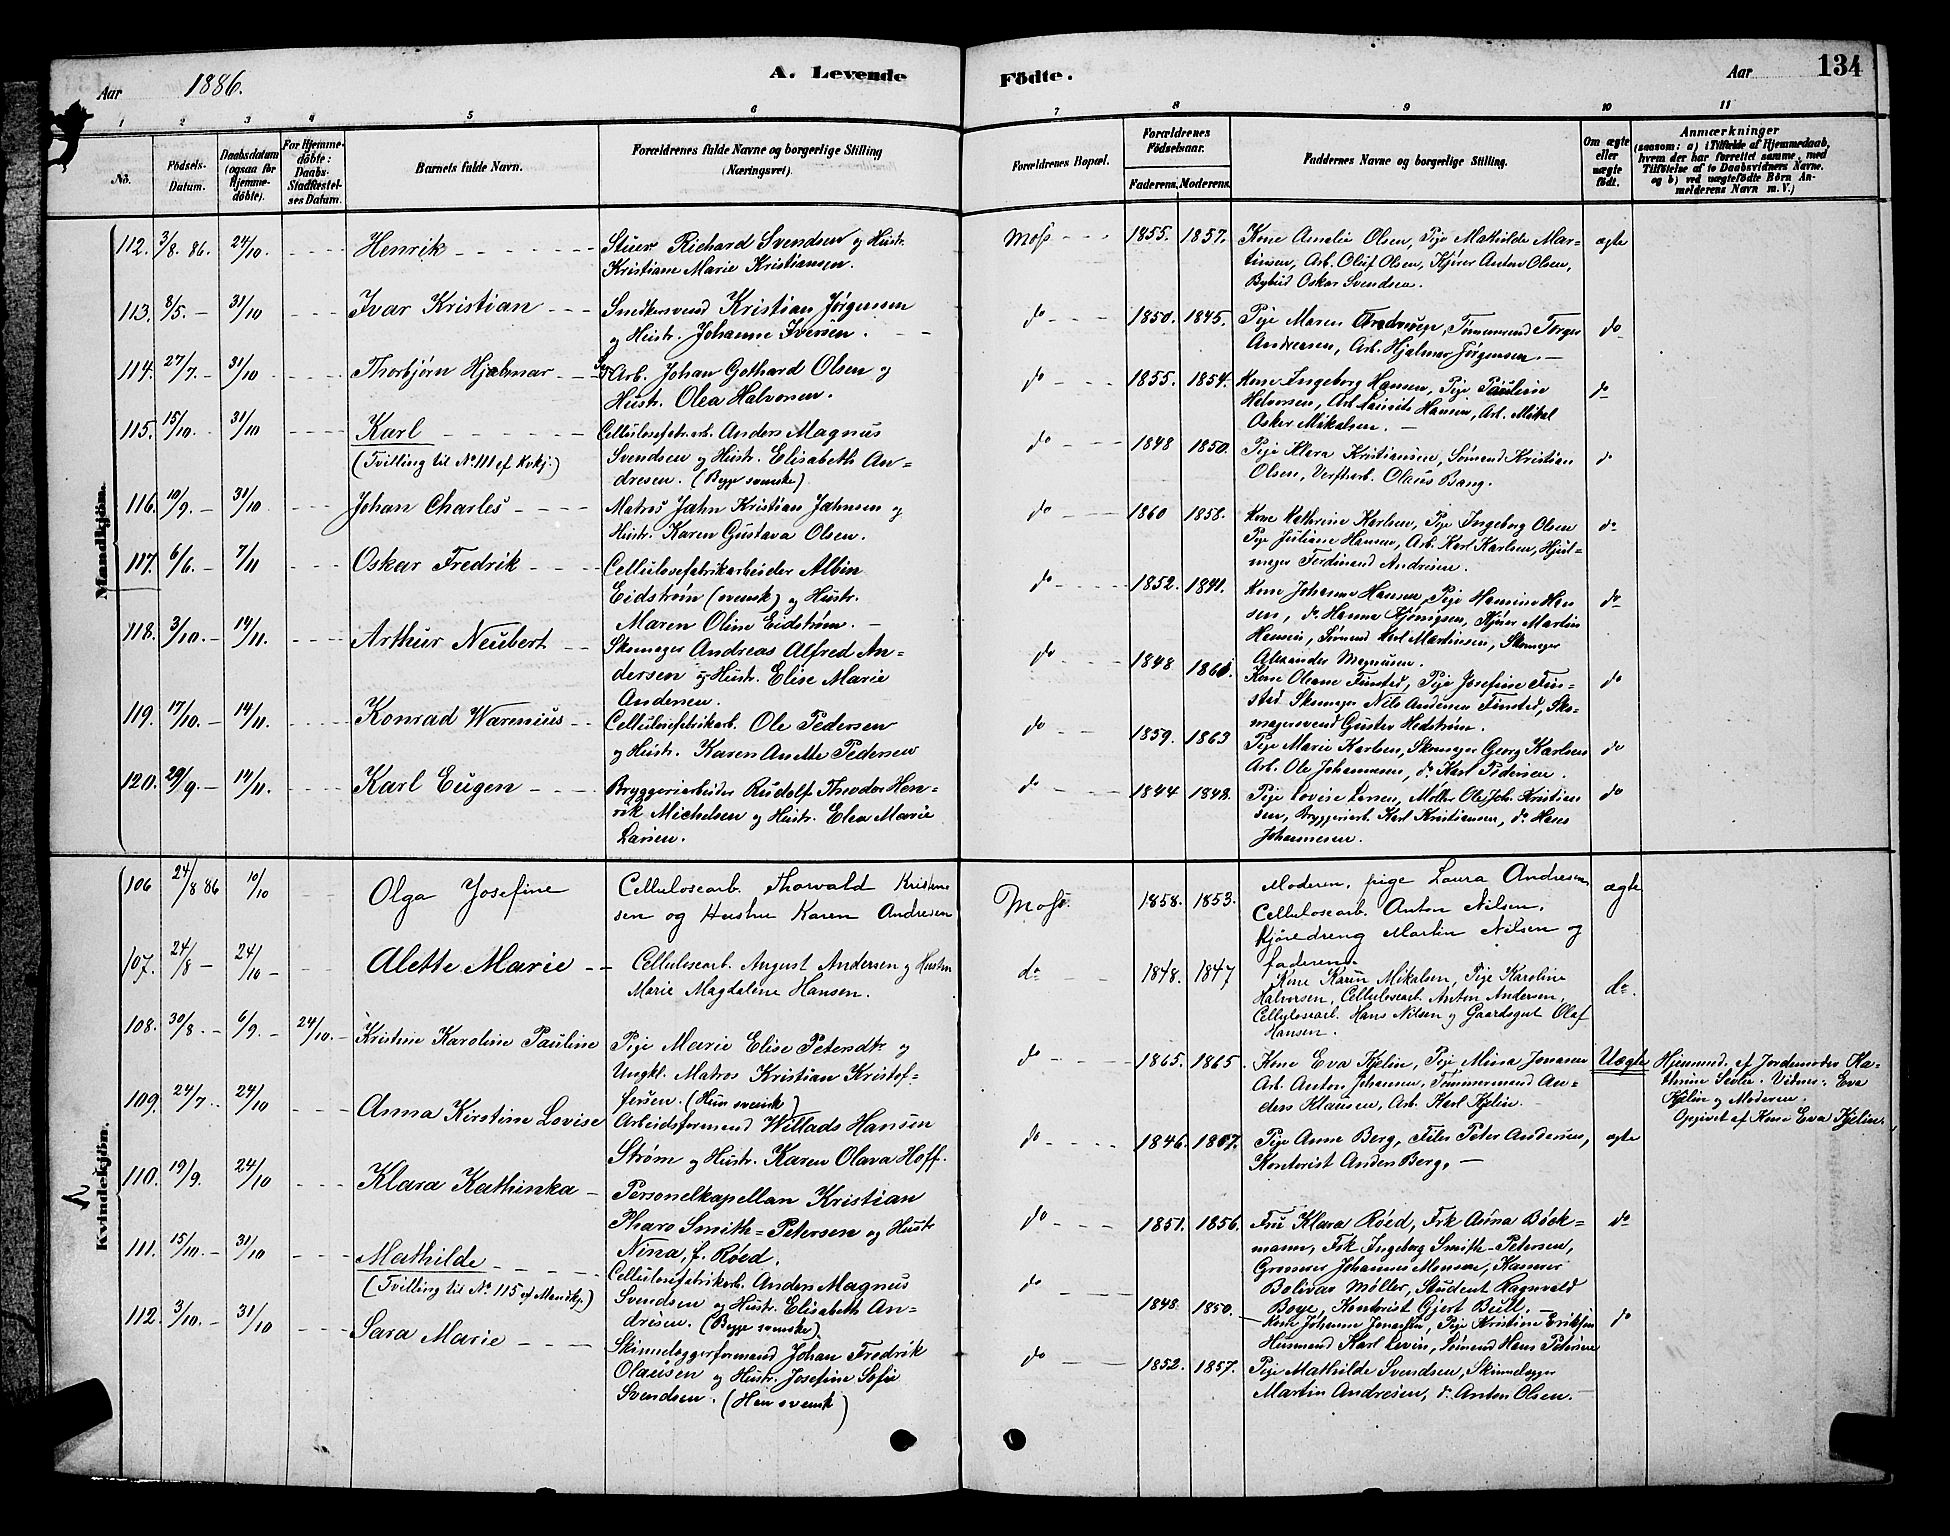 Aar 1886.
A. Levende
Födte.
Aar
134
1 2 3 4 5 6 7 8 9 10 11
No.
Födsels-Datum.
Daabsdatum (ogsaa for Hjemme-döbte).
For Hjemme-döbte: Daabs-Stadfæstel-ses Datum.
Barnets fulde Navn.
Forældrenes fulde Navne og borgerlige Stilling (Næringsvei).
Forældrenes Bopæl.
Forældrenes Födselsaar.
Faderens. Moderens.
Faddernes Navne og borgerlige Stilling.
Om ægte eller uægte födt.
Anmærkninger
(saasom: a) i Tilfælde af Hjemmedaab, hvem der har forrettet samme, med Tilföielse af to Daabsvidners Navne, og b) ved uægtefödte Börn An-melderens Navn m. V.)
Mandkjön.
112. 3/8. 86. 24/10. Henrik
Stuer Richard Svendsen og Hustr.
Kristiane Marie Kristiansen.
Moss 1855. 1857.
Kone Amalie Olsen, Pige Mathilde Mar-
tinsen, Arb. Oluf Olsen, Kjører Anton Olsen,
Bybud Oskar Svendsen.
ægte
113. 8/5. 31/10 Ivar Kristian
Snedkersvend Kristian Jørgensen
og Hustr. Johanne Iversen.
do 1850. 1845.
Pige Maren, Tømmermd Torger
Andreasen, Arb. Hjalmar Jørgensen.
do
114. 27/7. 31/10 Thorbjørn Hjalmar
Arb. Johan Gothard Olsen og
Hustr. Olea Halvorsen.
do 1855. 1854.
Kone Ingeborg Hansen, Pige Pauline
Halvorsen, Arb. Lauritz Hansen, Arb. Mikal
Oskar Mikalsen.
do
115. 15/10. 31/10 Karl
(Tvilling til No. 111 af Kvkj.)
Cellulosefabr.arb. Anders Magnus
Svendsen og Hustr. Elisabeth An-
dresen. (Begge svenske).
do 1848 1850.
Pige Klara Kristiansen, Sømand Kristian
Olsen, Verftsarb. Olaus Bang.
do
116. 10/9. 31/10 Johan Charles
Matros Jahn Kristian Jahnsen og
Hustr. Karen Gustava Olsen.
do 1860 1858.
Kone Kathrine Karlsen, Pige Ingeborg Olsen
Pige Juliane Hansen, Arb. Karl Karlsen, Hjul-
mager Ferdinand Andresen.
do
117. 6/6. 7/11 Oskar Fredrik
Cellulosefabrikarbeider Albin
Eidstrøm (svensk) og Hustr.
Maren Oline Eidstrøm.
do 1852. 1841.
Kone Johanne Hansen, Pige Hansine Han
sen, do Hanna Kjønigsen, Kjører Martin
Hansen, Sømand Karl Martinsen, Skomager
Alexander Magnusen.
do
118. 3/10. 14/11. Arthur Neubert
Skomager Andreas Alfred An-
dersen og Hustr. Elise Marie
Andersen.
do 1848 1860.
Kone Oleane Finsted, Pige Josefine Fin-
sted Skomager Nils Andersen Finsted, Sko-
magersvend Gustav Hedstrøm.
do
119. 17/10. 14/11. Konrad Warenius
Cellulosefabrikarb. Ole Pedersen
og Hustr. Karen Anette Pedersen
do 1859. 1863
Pige Marie Karlsen, Skomager Georg Karlsen
Arb. Ole Johannesen, do Karl Pedersen.
do
120. 29/9. 14/11. Karl Eugen
Bryggeriarbeider Rudolf Theodor Hen-
rik Michelsen og Hustr. Elea Marie
Larsen.
do 1844 1848.
Pige Lovise Larsen, Møller Ole Joh. Kristian
sen, Bryggeriarb. Karl Kristiansen, do Hans
Johannesen.
do
Kvindekjön.
106 24/8 86 10/10 Olga Josefine
Cellulosearb. Thorvald Kristen
sen og Hustru Karen Andresen
Moss. 1858. 1853.
Moderen, pige Laura Andresen
Cellulosearb. Anton Nilsen,
Kjøredreng Martin Nilsen og
faderen.
ægte
107. 24/8 24/10 Alette Marie
Cellulosearb. August Andersen og Hustru
Marie Magdalene Hansen.
do 1848. 1847
Kone Karin Mikalsen, Pige Karoline
Halvorsen, Cellulosearb. Anton Andersen,
Cellulosearb. Hans Nilsen og Gaardsgut Olaf
Hansen.
do.
108. 30/8. 6/9. 24/10. Kristine Karoline Pauline
Pige Marie Elise Petersdtr og
Ungkl. Matros Kristian Kristof-
fersen. (Hun svensk)
do 1865. 1865
Kone Eva Kjelin, Pige Mina Jonasen
Arb. Anton Johansen, Tømmermand An-
ders Klausen, Arb. Karl Kjelin.
Uægte
Hjemmed. af Jordemoder Ka-
thrine Vidner: Eva
Kjelin og Moderen.
Opgivet af Kone Eva Kjelin.
109. 24/7. 24/10 Anna Kirstine Lovise
Arbeidsformand Willads Hansen
Strøm og Hustr. Karen Olava Hoff.
do 1846. 1867.
Pige Anne Berg, Filer Peter Andersen,
Kontorist Anders Berg.
ægte
110. 19/9. 24/10 Klara Kathinka
Personelkapellan Kristian
Pharo Smith-Petersen og Hustr
Nina, f. Røed.
do 1851. 1856.
Fru Klara Røed, Frk Anna Bøck-
mann, Frk Ingeborg Smith-Petersen,
Grosserer Johannes Monsen, Kamrer
Bolivar Møller, Student Ragnvald
Boye, Kontorist Gjert Bull.
do
111. 15/10. 31/10 Mathilde
(Tvilling til No. 115 af Mandkj.)
Cellulosefabrikarb. Anders Magnus
Svendsen og Hustr. Elisabeth An-
dresen. (Begge svenske).
do 1848. 1850.
Kone Johanne Jonassen, Pige Kristine Eriksen
Husmand Karl Levin, Sømand Hans Petersen
do
112. 3/10. 31/10 Sara Marie
Skinnelæggerformand Johan Fredrik
Olausen og Hustr. Josefine Sofie
Svendsen. (Han svensk)
do 1852. 1857.
Pige Mathilde Svendsen, Skinnelægger
Martin Andresen, do Anton Olsen.